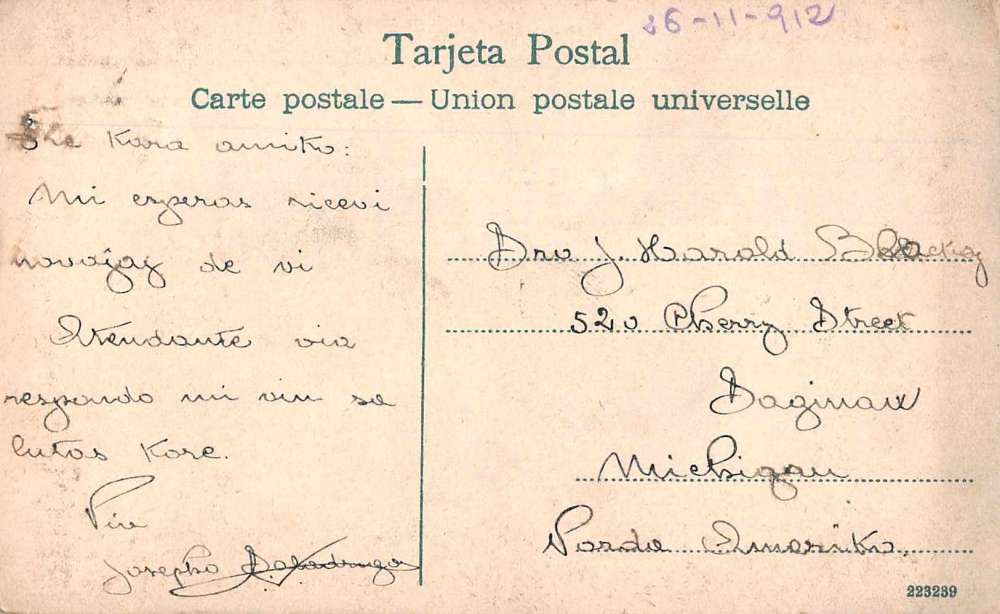 26-11-912
Tarjeta Postal
Carte postale — Union postale universelle
Kara amiko:
Mi esperas ricevi
novajoj de vi
Atendante via
respondo mi vin sa
lutas kore.
Via
Josepho
Dro J. Harold
520 Cherry Street
Saginaw
Michigan
Norda Ameriko.
223239